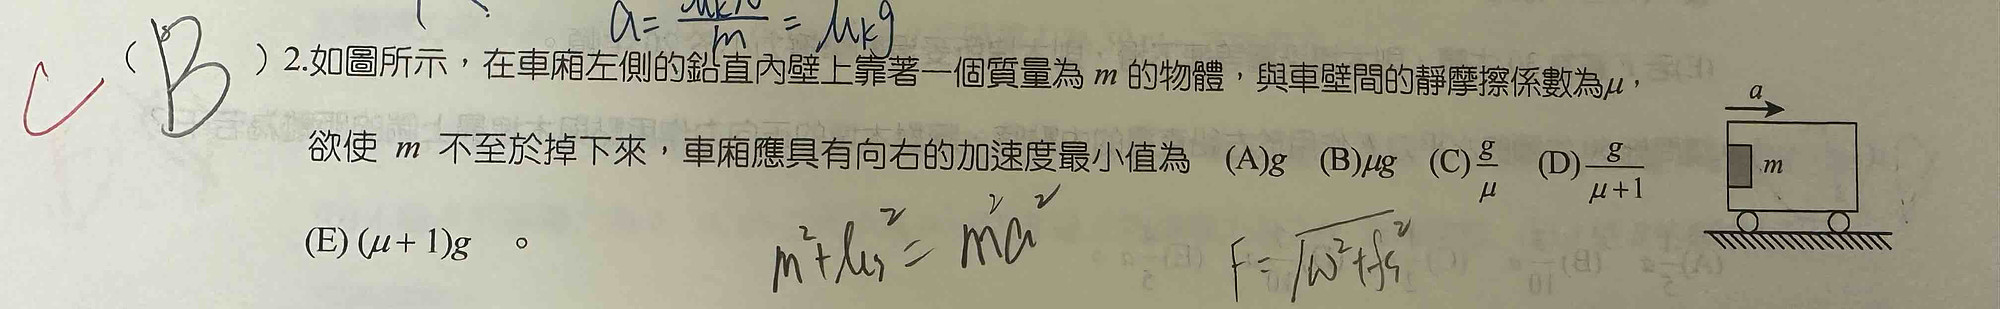 a = μkN/m = μkg
C ( B ) 2.如圖所示，在車廂左側的鉛直內壁上靠著一個質量為 m 的物體，與車壁間的靜摩擦係數為μ，
欲使 m 不至於掉下來，車廂應具有向右的加速度最小值為 (A)g (B)μg (C)g/μ (D)g/μ+1
(E) (μ+1)g 。
a
m
m²+μs² = m²a²
F=√w²+fs²